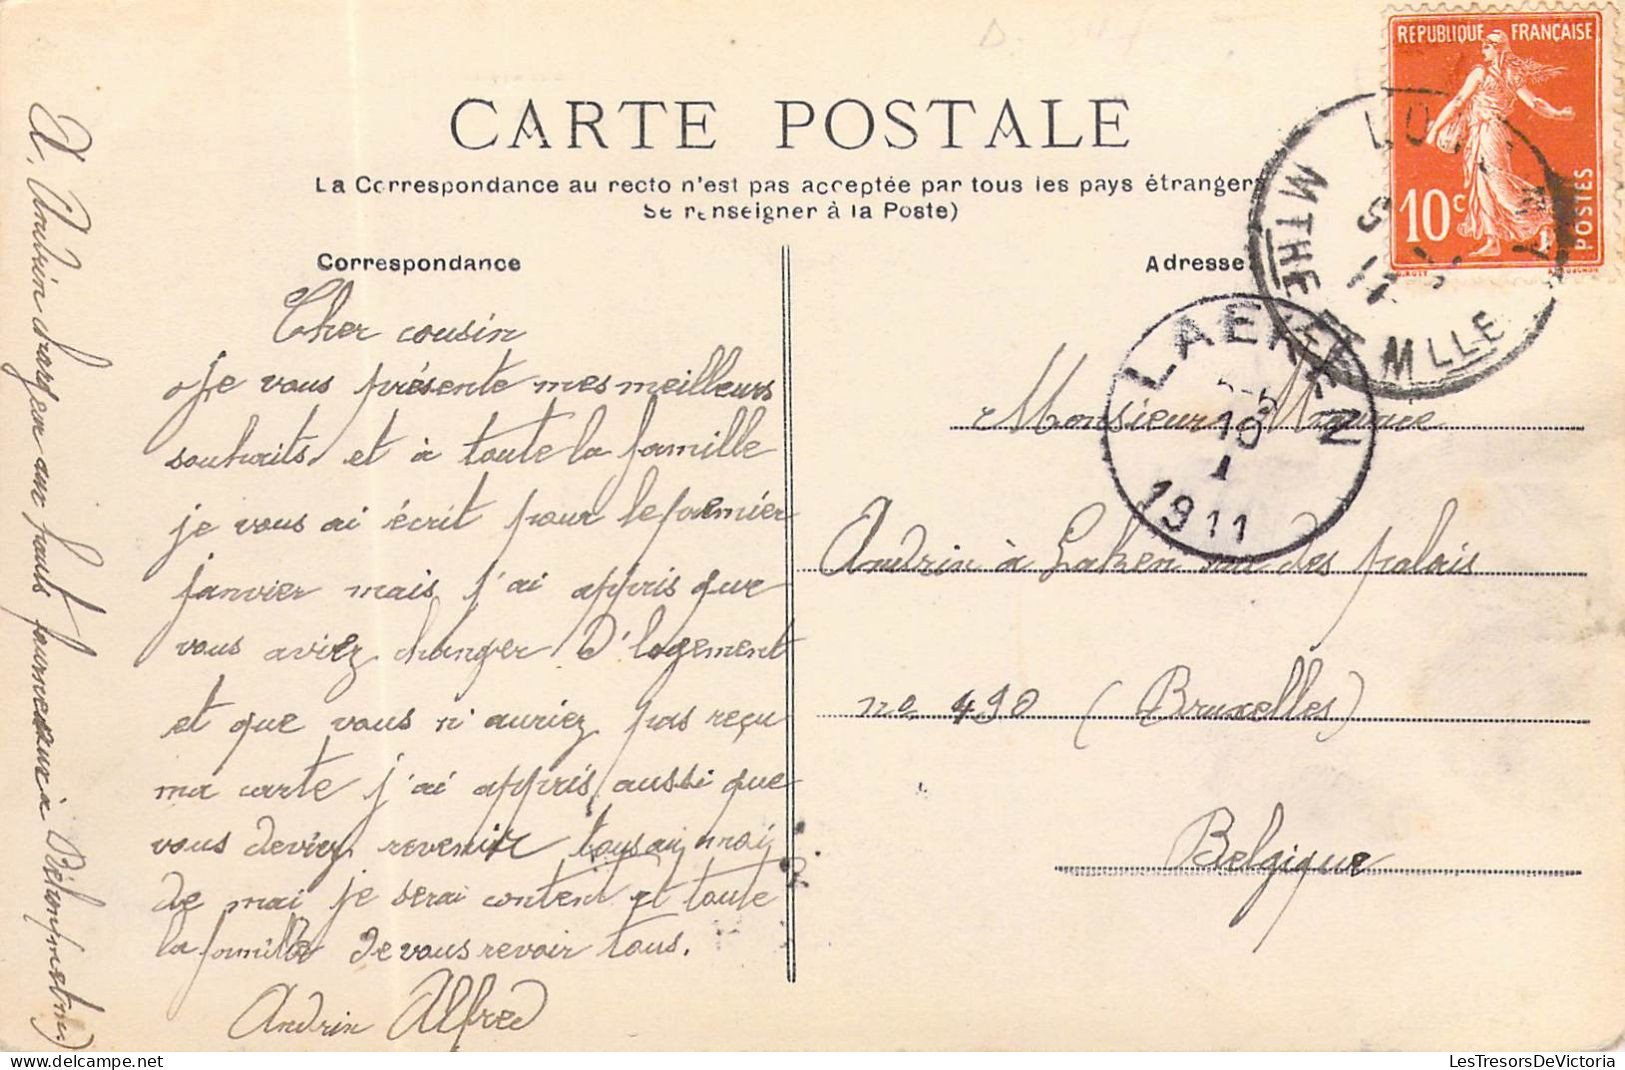 CARTE POSTALE
La Correspondance au recto n'est pas acceptée par tous les pays étrangers
Se renseigner à la Poste)
Correspondance
Cher cousin
Je vous présente mes meilleurs
souhaits et à toute la famille
je vous ai écrit pour le premier
janvier mais j'ai appris que
vous aviez changer D'logement
et que vous n'auriez pas reçu
ma carte j'ai appris aussi que
vous deviez revenir tous au moi
de mai je serai content et toute
la famille de vous revoir tous.
Andrin Alfred
A. Andrin chargeur aux hauts fourneaux à
Adresse
Monsieur Maurice
Andrin à Laken rue des palais
no 490 (Bruxelles)
Belgique
REPUBLIQUE FRANÇAISE
10c
POSTES
MTHE
MLLE
LAEKEN
10
1
1911
LesTresorsDeVictoria.com